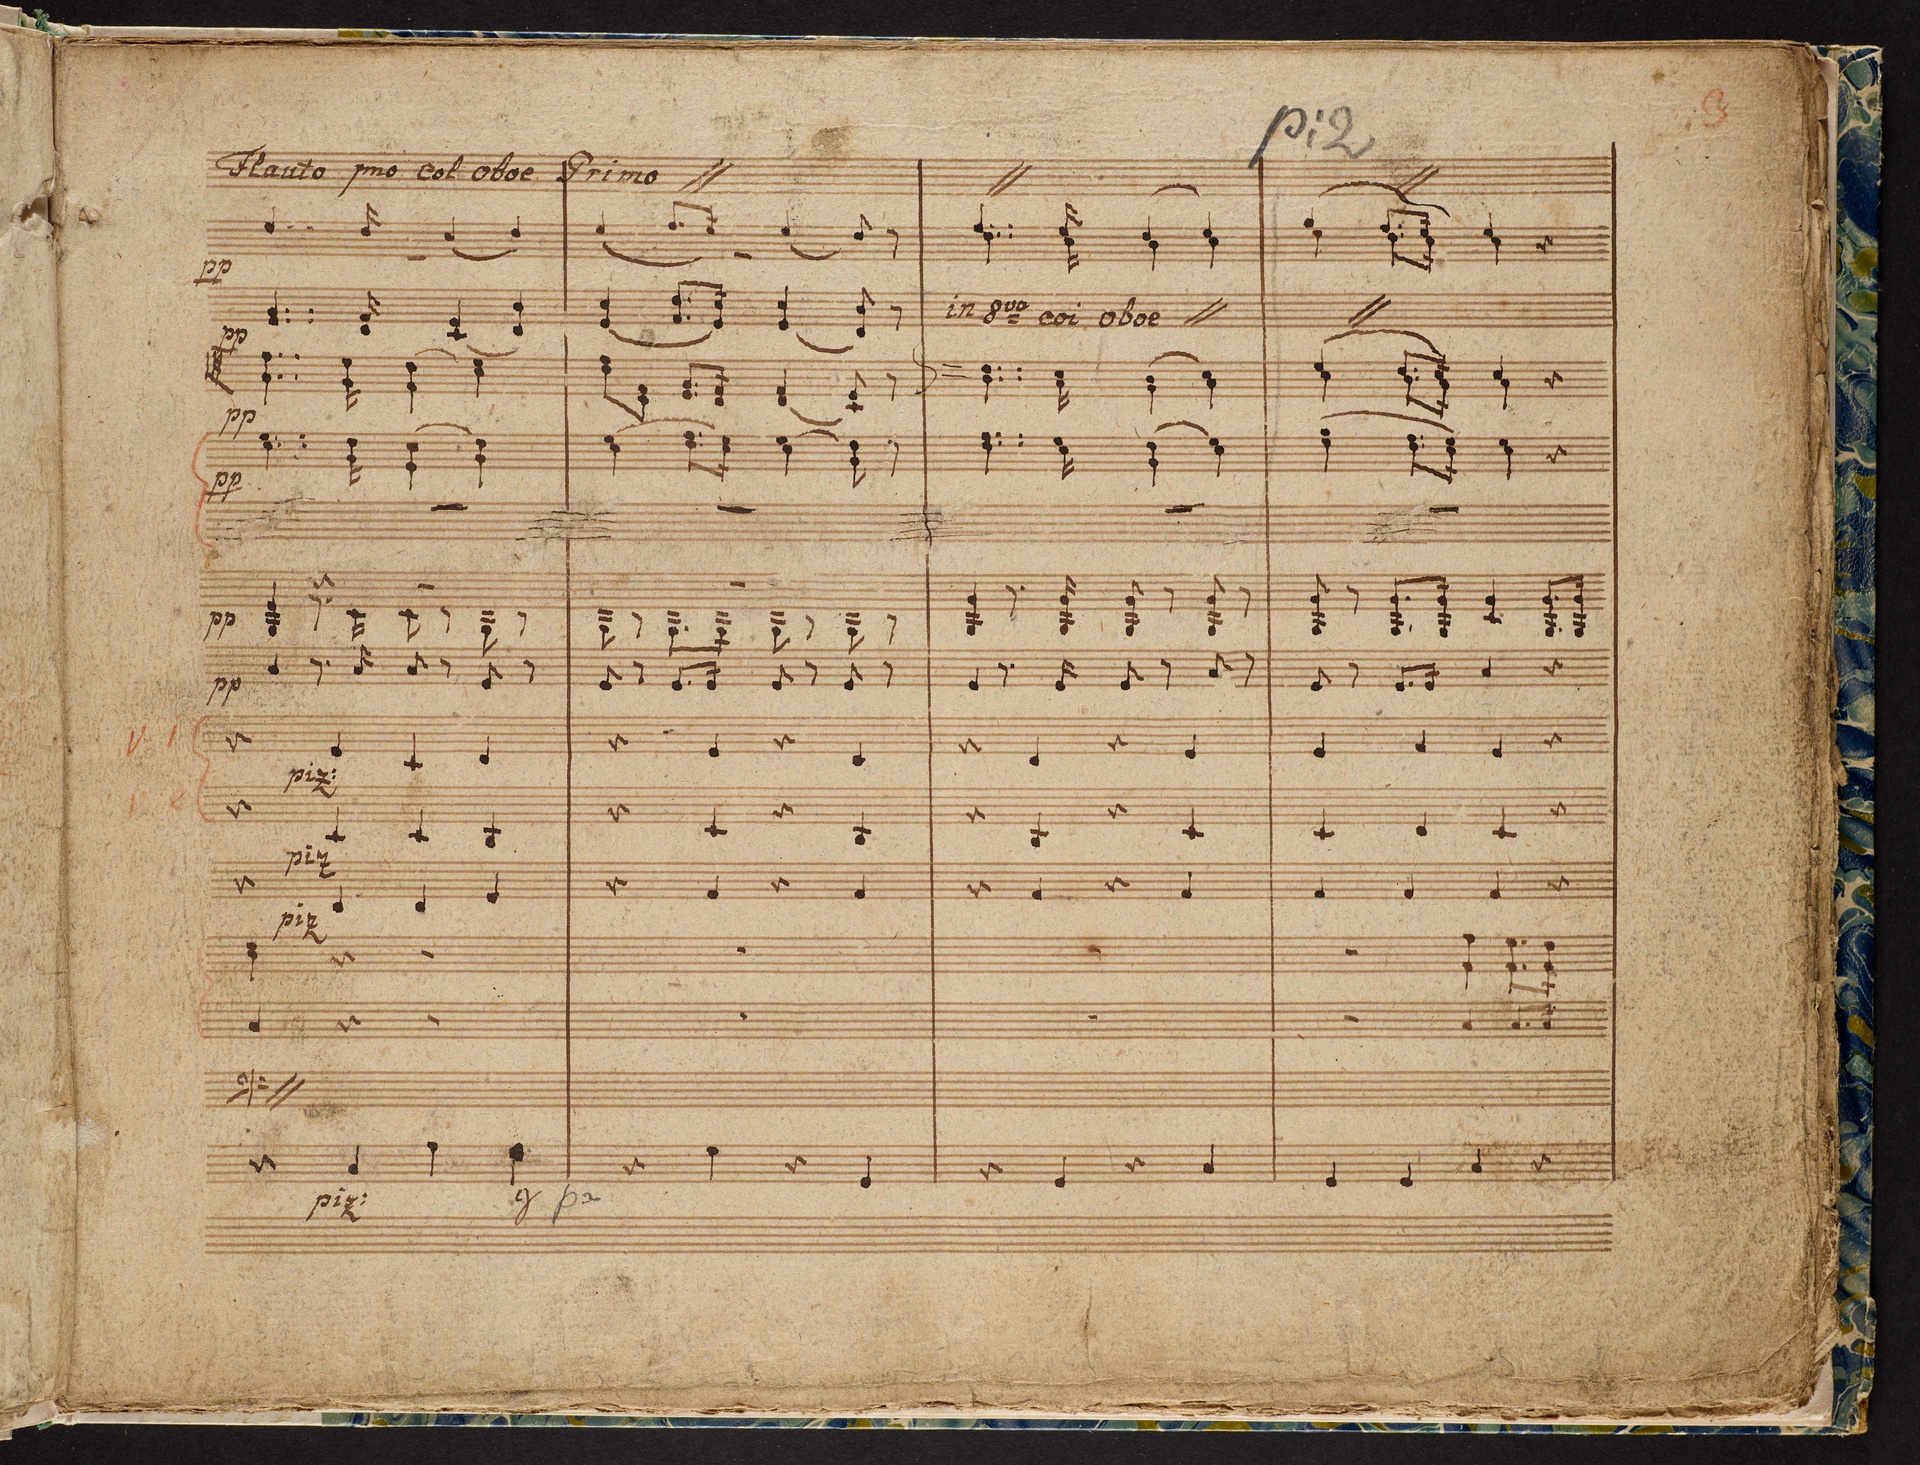 piz
3
Flauto pmo col oboe Primo
pp
in 8va coi oboe
pp
pp
pp
pp
pp
V: 1
piz:
V: 2
piz
piz
piz: